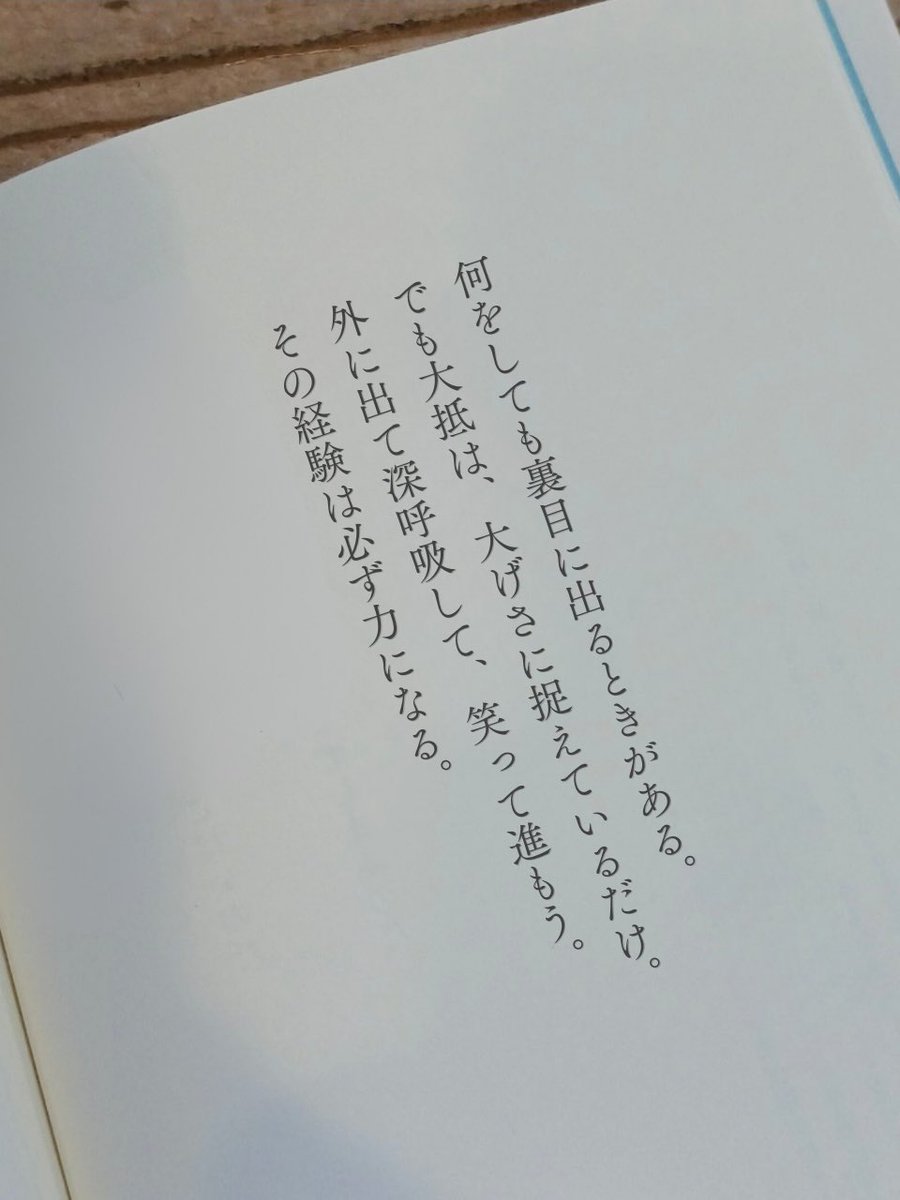 何をしても裏目に出るときがある。
でも大抵は、大げさに捉えているだけ。
外に出て深呼吸して、笑って進もう。
その経験は必ず力になる。